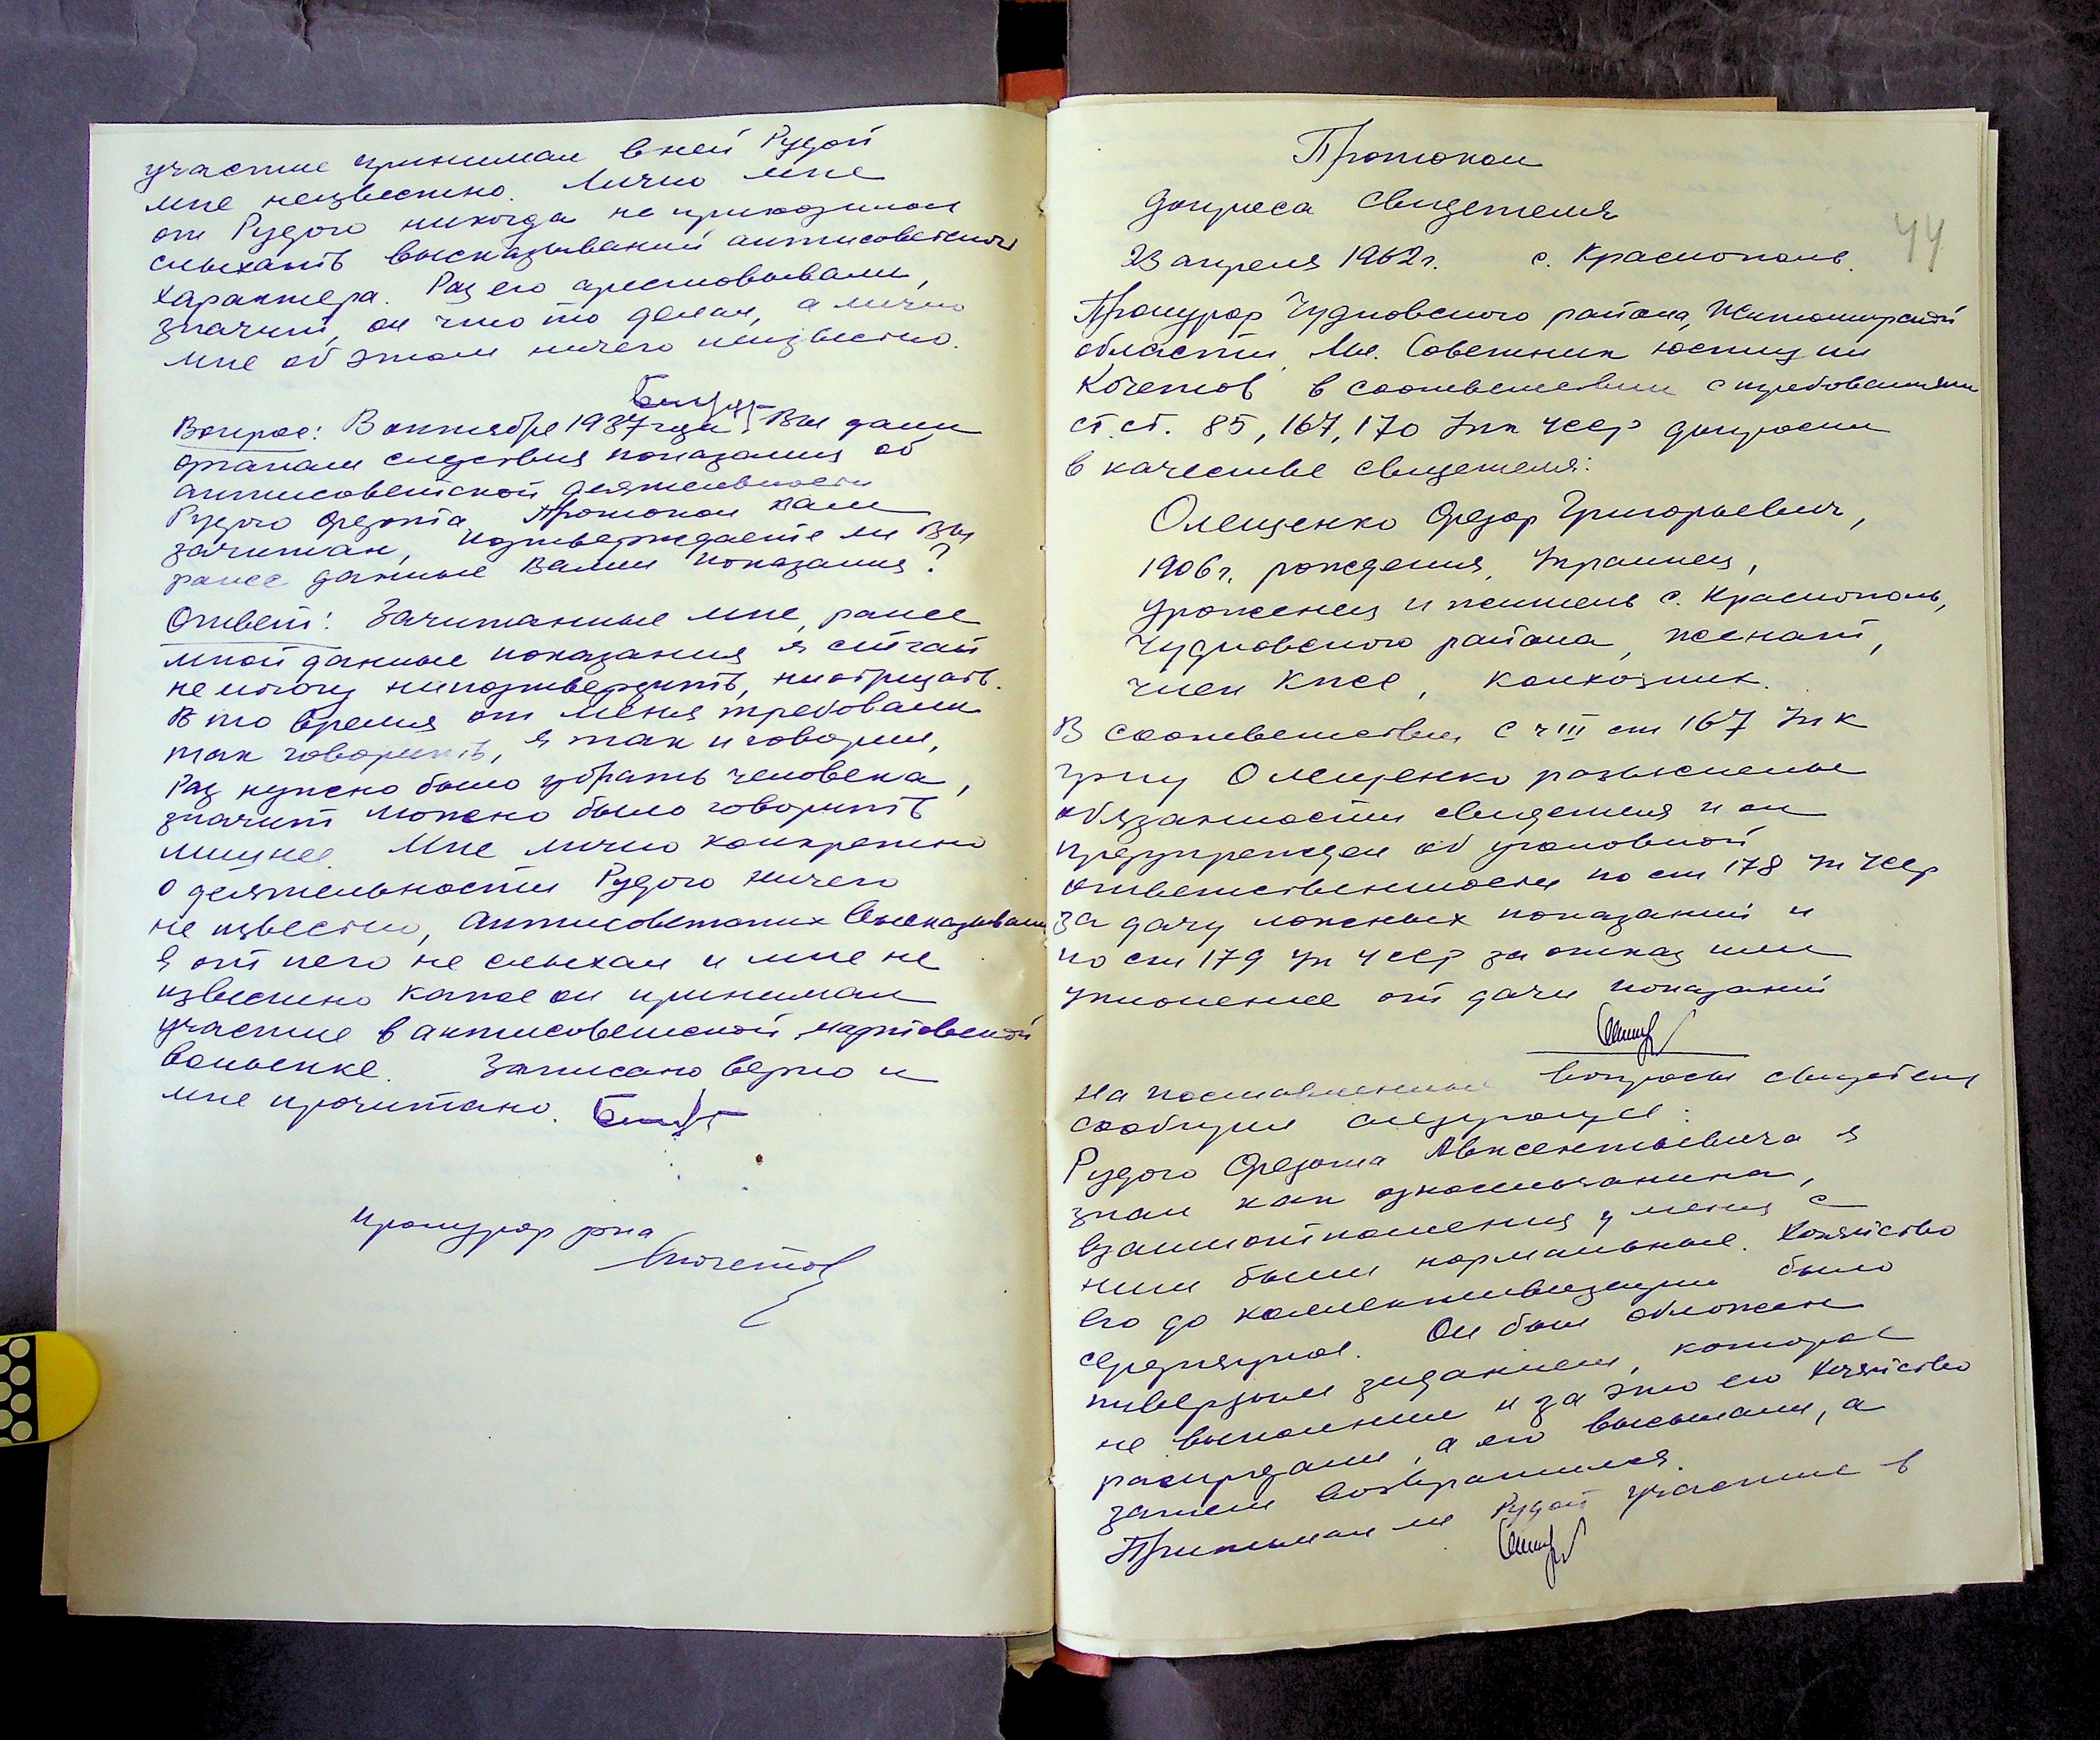 участие принимал в ней Рудой
мне неизвестно. Лично мне
от Рудого никогда не приходилось
слыхать высказываний антисоветского
характера. Раз его арестовывали,
значит, он что то делал, а лично
мне об этом ничего неизвестно.
Вопрос: В октябре 1937 года Вы дали
органам следствия показания об
антисоветской деятельности
Рудого Федота. Протокол Вам
зачитан, подтверждаете ли Вы
ранее данные Вами показания?
Ответ: Зачитанные мне, ранее
мной данные показания я сичас
не могу ни подтвердить, ни отрицать.
В то время от меня требовали
так говорить, я так и говорил,
Раз нужно было убрать человека,
значит можно было говорить
лишнее. Мне лично конкретно
о деятельности Рудого ничего
не известно, антисоветских высказываний
я от него не слыхал и мне не
известно какое он принимал
участие в антисоветской мартовской
волынке. Записано верно и
мне прочитано.
Прокурор р-на
Кочетов
44
Протокол
допроса свидетеля
23 апреля 1962 г. с. Краснополь.
Прокурор Чудновского района, Житомирской
области, Мл. Советник юстиции
Кочетов в соответствии с требованиями
ст. ст. 85, 167, 170 УПК УССР допросил
в качестве свидетеля:
Олещенко Федор Григорьевич,
1906 г. рождения, Украинец,
уроженец и житель с. Краснополь,
Чудновского района, женат,
член КПСС, колхозник.
В соответствии с ч III ст 167 УПК
гр-ну Олещенко разъяснены
обязанности свидетеля и он
предупрежден об уголовной
ответственности по ст 178 УК УССР
за дачу ложных показаний и
по ст 179 УК УССР за отказ или
уклонение от дачи показаний
На поставленные вопросы свидетель
сообщил следующее:
Рудого Федота Авксентьевича я
знал как односельчанина,
взаимоотношения у меня с
ним были нормальные. Хозяйство
его до коллективизации было
середняцкое. Он был обложен
твердым заданием, которое
не выполнил и за это его хозяйство
распродали, а его высылали, а
затем возвратился.
Принимал ли Рудой участие в